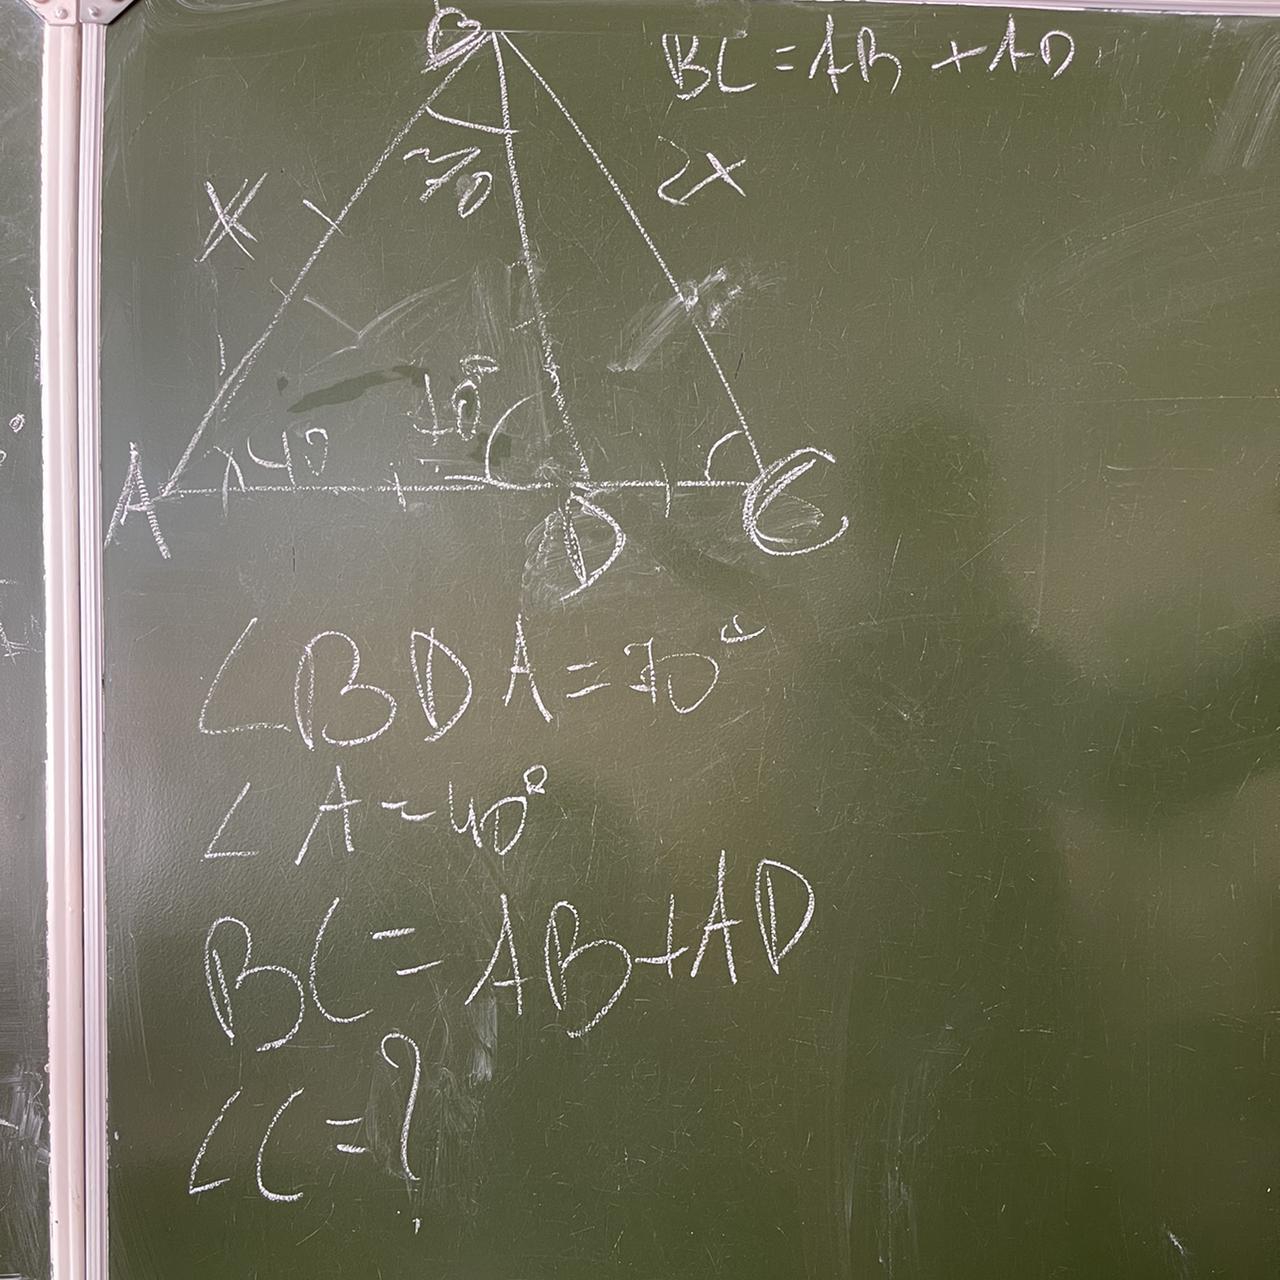 B
BC = AB + AD
70
x
2x
70°
40
A
D
C
∠BDA = 70°
∠A = 40°
BC = AB + AD
∠C = ?